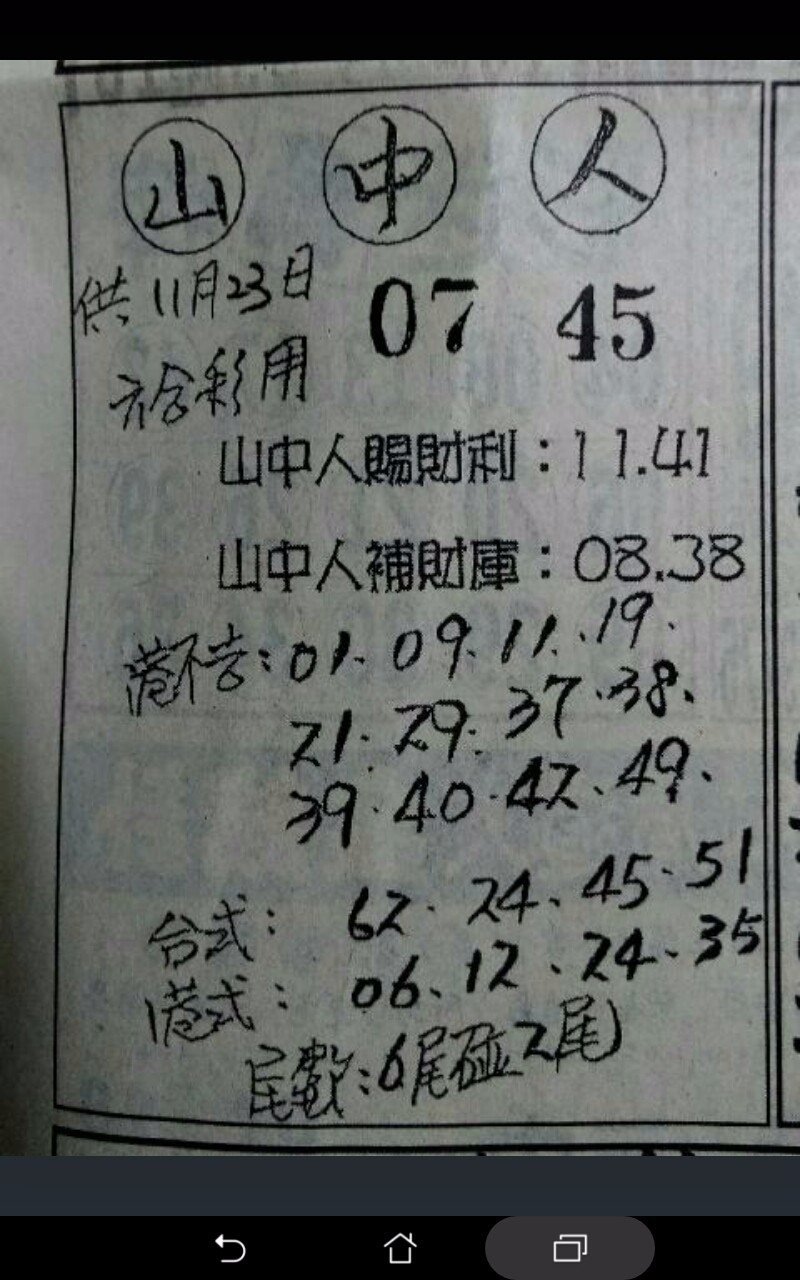 山 中 人
供11月23日
07 45
六合彩用
山中人賜財利：11.41
山中人補財庫：08.38
港不含：01.09.11.19.
21.29.37.38.
39.40.42.49.
台式：62.24.45.51
港式：06.12.24.35
尾數：6尾碰2尾